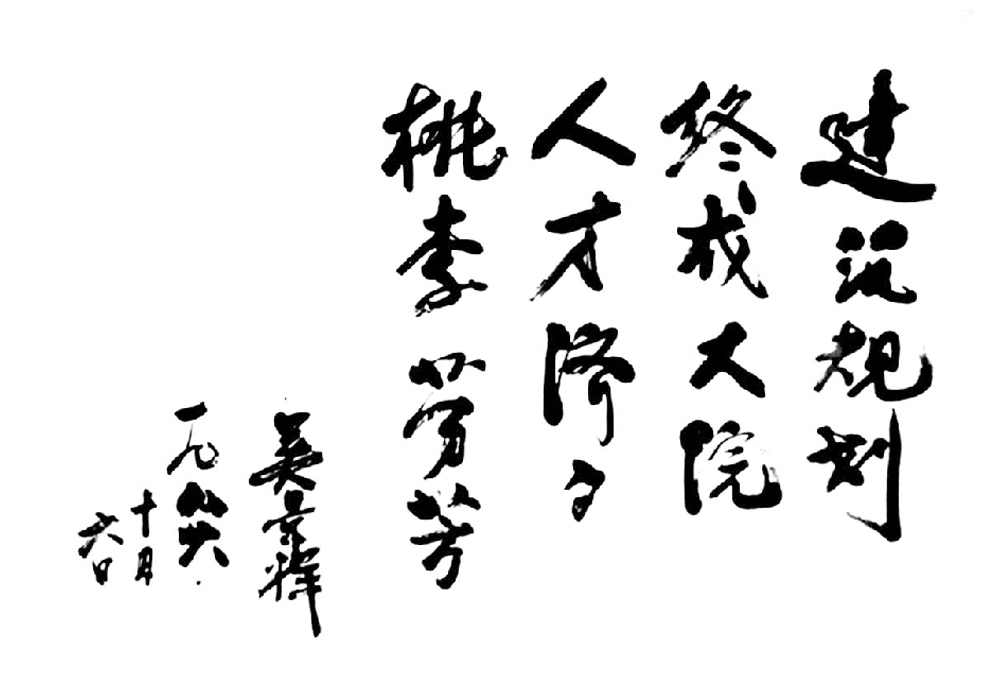 建筑规划
终成大院
人才济々
桃李芬芳
吴景祥
一九八六
十月
六日